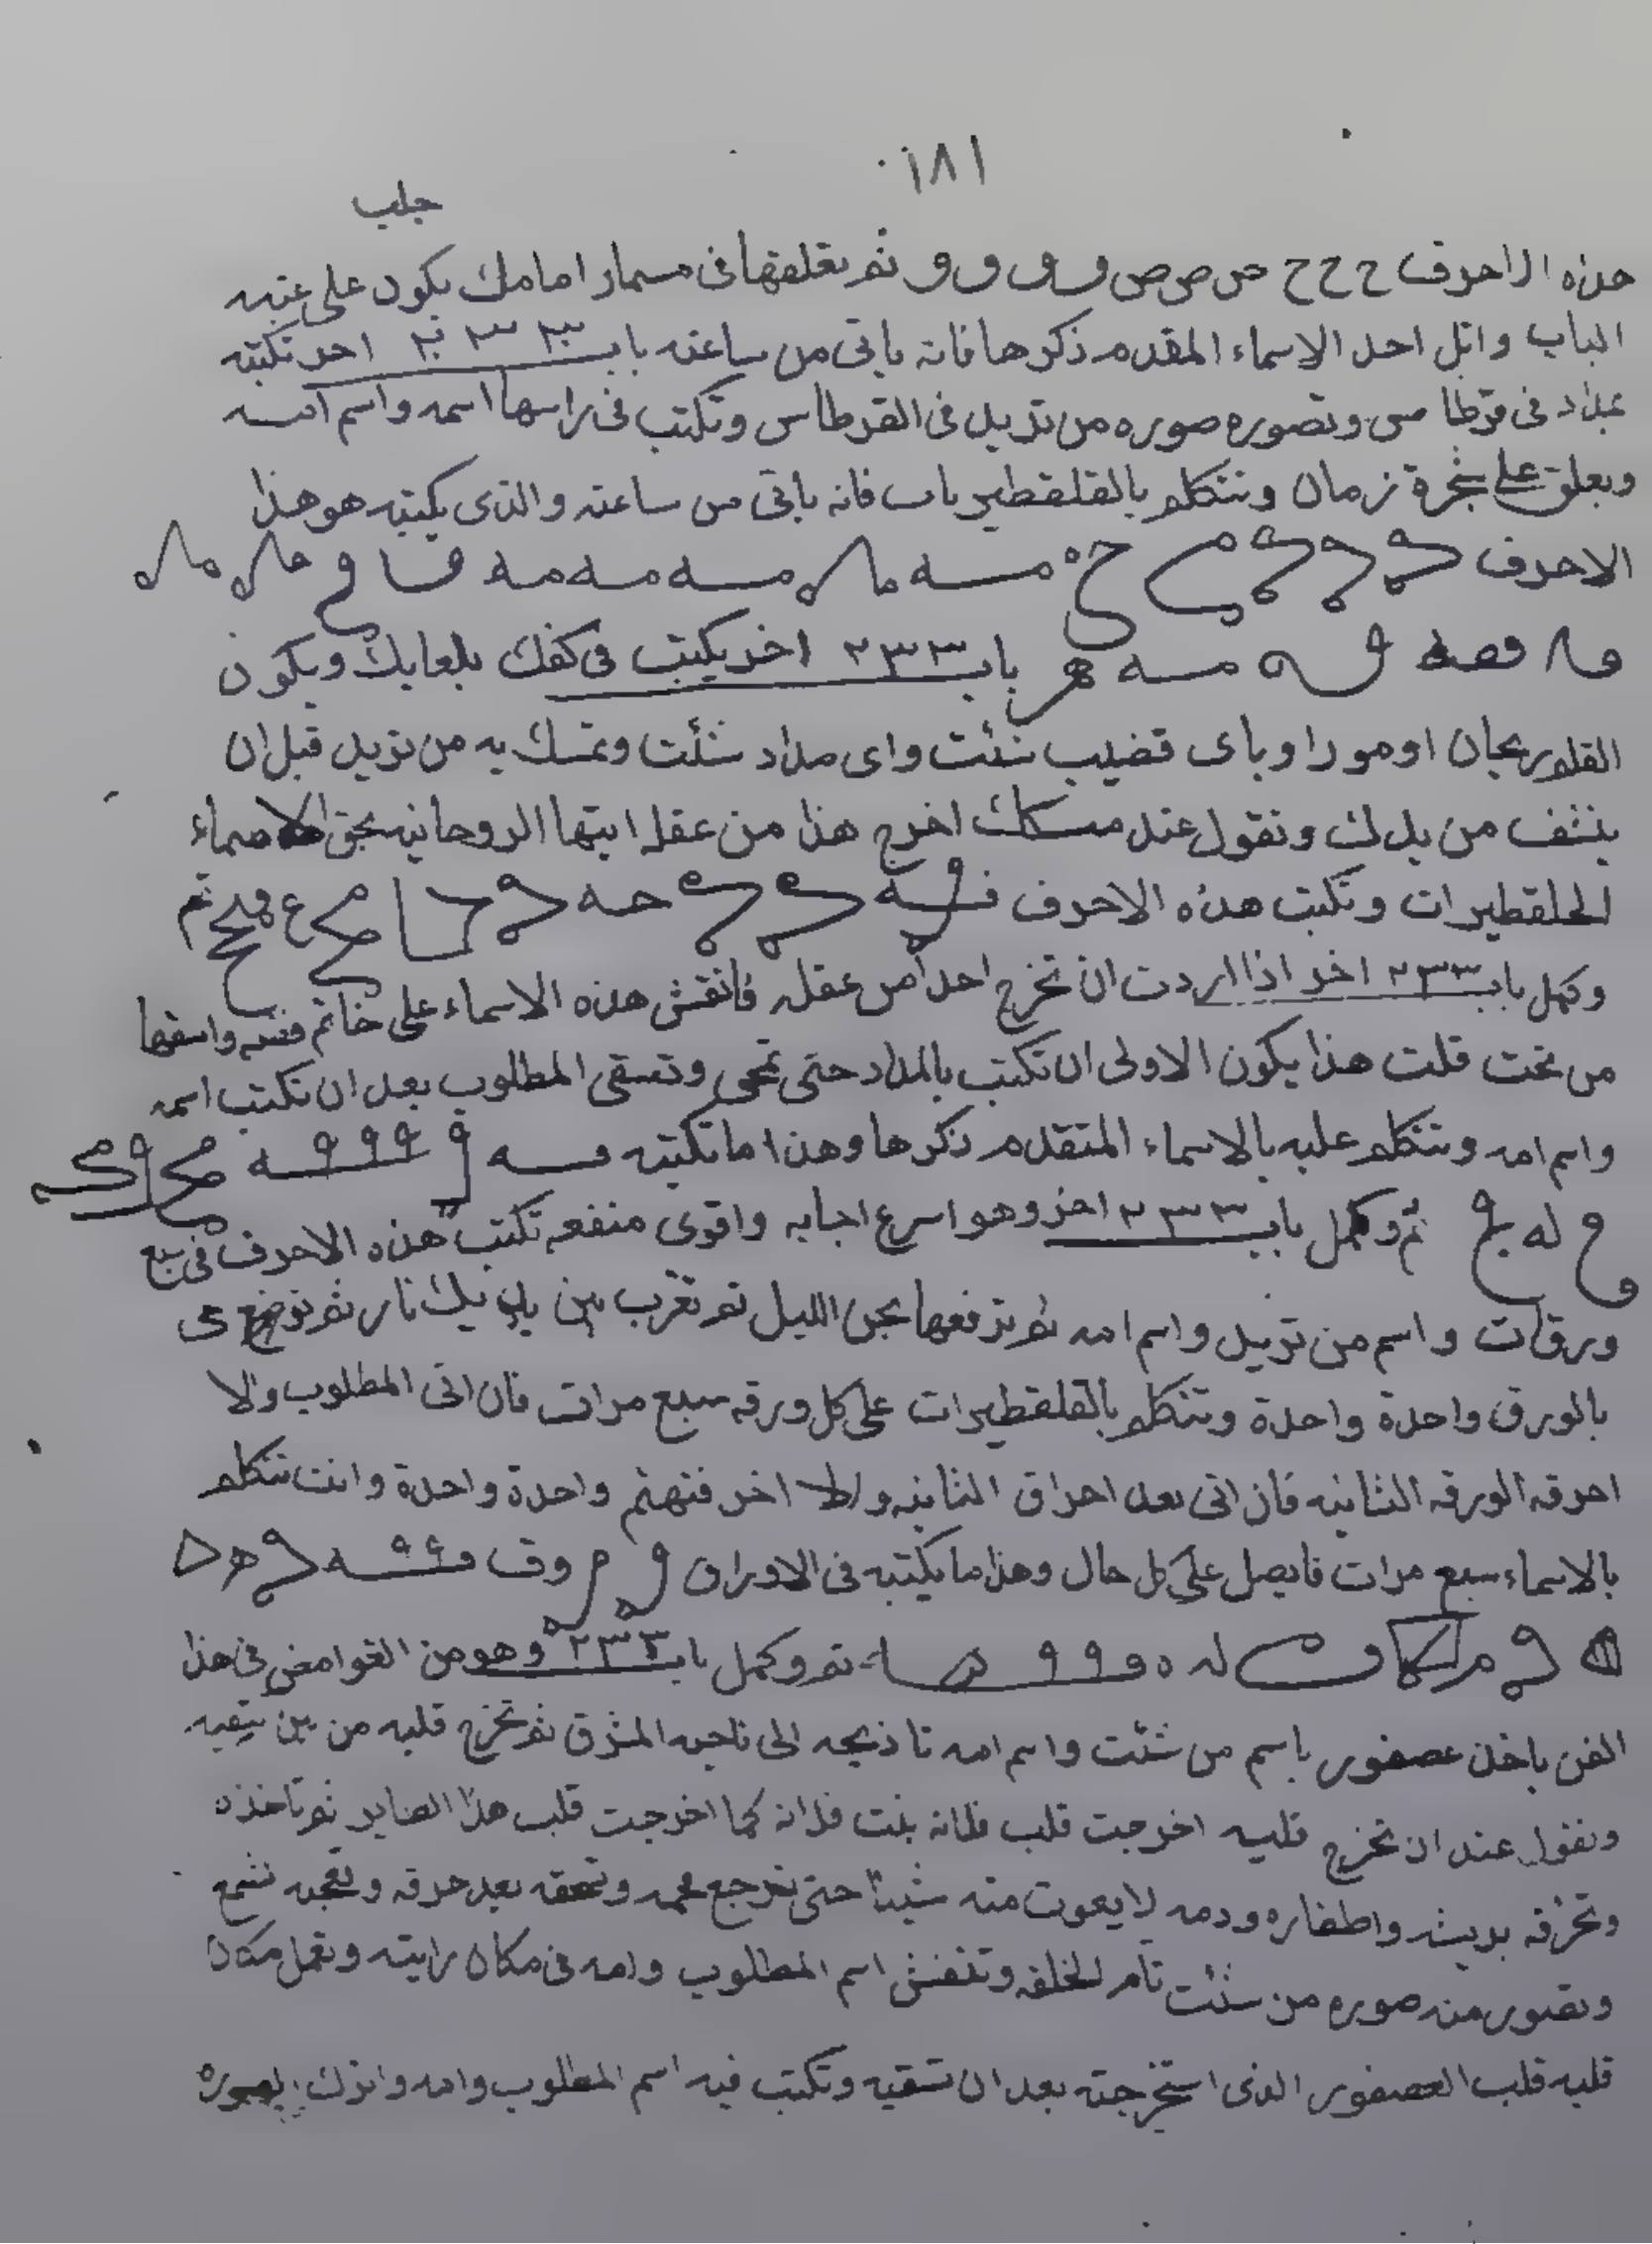 ١٨١
جلب
هذه الاحرف ح ح ح ص ص ص و و و و ثم تعلقها فى مسمار امامك يكون على عتبه
الباب واتل احد الاسماء المقدم ذكرها فانه ياتى من ساعته باب ٢٣٣ اخر تكتبه
بمداد فى قرطاس وتصوره صوره من تريد فى القرطاس وتكتب فى راسها اسمه واسم امه
وبعلق على شجرة زمان وتتكلم بالقلقطيريات فانه ياتى من ساعته والذى يكتبه هو هذا
الاحرف
باب ٢٣٣ اخر يكتب فى كفك بلعابك ويكون
القلم ريحان او مورا وباى قضيب شئت واى مداد شئت وتمسك به من تريد قبل ان
ينشف من يدك وتقول عند مسكك اخرج هذا من عقله ايتها الروحانيه بحق الاسماء
الحلقطيرات وتكتب هذه الاحرف تم
وكمل باب ٢٣٣ اخر اذا اردت ان تخرج احدا من عقله فانقش هذه الاسماء على خاتم فضه واسقها
من تحت قلت هذا يكون الاولى ان تكتب بالمداد حتى تمحى وتسقى المطلوب بعد ان تكتب اسمه
واسم امه وتتكلم عليه بالاسماء المتقدم ذكرها وهذا ما تكتبه
تم وكمل باب ٢٣٣ اخر وهو اسرع اجابه واقوى منفعه تكتب هذه الاحرف فى سبع
ورقات واسم من تريد واسم امه ثم ترفعها بجن الليل ثم تقرب بين يديك نار ثم توضع
بالورق واحدة واحدة وتتكلم بالقلقطيرات على كل ورقه سبع مرات فان اتى المطلوب والا
احرقه الورقه الثانيه فان اتى بعد احراق الثانيه والا اخر فتهتم واحدة واحدة وانت تتكلم
بالاسماء سبع مرات فايصل على كل حال وهذا ما يكتبه فى الاوراق
تم وكمل باب ٢٣٣ وهو من الغوامض فى هذا
الفن ياخذ عصفور باسم من شئت واسم امه تاذبحه الى ناحيه المشرق ثم تخرج قلبه من بين
وتقول عند ان تخرج قلبه اخرجت قلب فلانه بنت فلانه كما اخرجت قلب هذا الطاير ثم تاخذه
وتحرقه بريشه واظفاره ودمه لا يفوت منه شيئا حتى يرجع فحمه وتسحقه بعد حرقه وتعجنه بشمع
وتصور منه صوره من شئت تام الخلقه وتنقش اسم المطلوب وامه فى مكان رايته وتعمل مكان
قلبه قلب العصفور الذى استخرجته بعد ان تشقيه وتكتب فيه اسم المطلوب وامه واترك الصوره